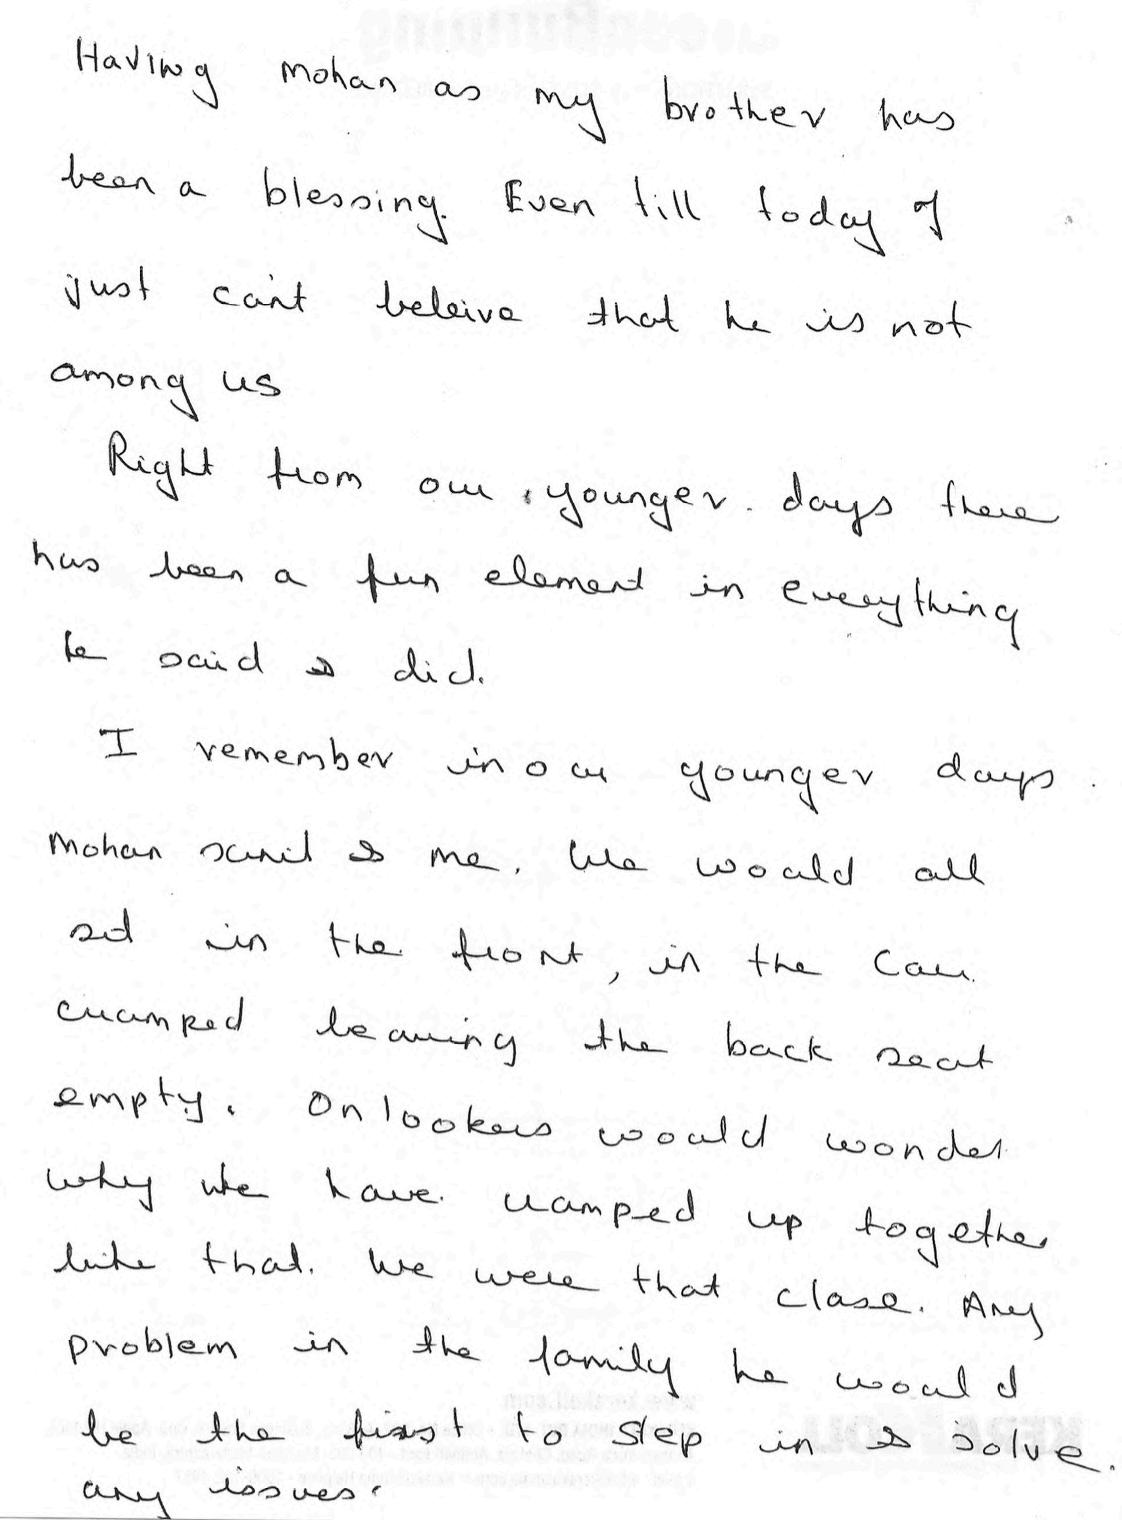 Having mohan as my brother has
been a blessing. Even till today I
just can't beleive that he is not
among us
Right from our younger days there
has been a fun element in everything
he said & did.
I remember in our younger days.
Mohan sunil & me. We would all
sit in the front, in the car
cramped leaving the back seat
empty. Onlookers would wonder
why we have cramped up together
like that. We were that close. Any
problem in the family he would
be the first to step in & solve.
any issues.